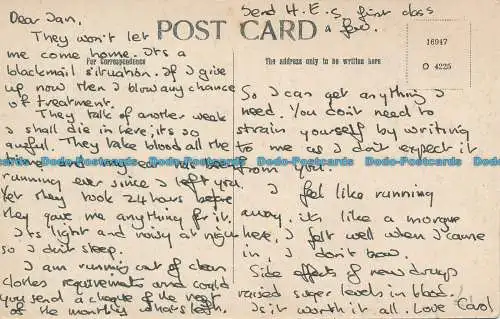 Dear Jan,
They won't let
me come home. It's a
blackmail situation. If I give
up now then I blow any chance
of treatment.
They talk of another week
I shall die in here; it's so
awful. They take blood all the
time and my ear has been
running ever since I left you.
Yet they took 24 hours before
they gave me anything for it.
It's light and noisy at night
so I don't sleep.
I am running out of clean
clothes requirements and could
you send a cheque of the rest
of the monthly
POST CARD
For Correspondence
The address only to be written here
16947
O 4225
Send H.E.S. first class
a few.
So I can get anything I
need. You don't need to
strain yourself by writing
to me as I don't expect it
from you.
I feel like running
away, it's like a morgue
here, I felt well when I came
in, I don't now.
Side effects of new drugs
raised sugar levels in blood.
Is it worth it all. Love Carol
Dodo-Postcards Dodo-Postcards Dodo-Postcards Dodo-Postcards